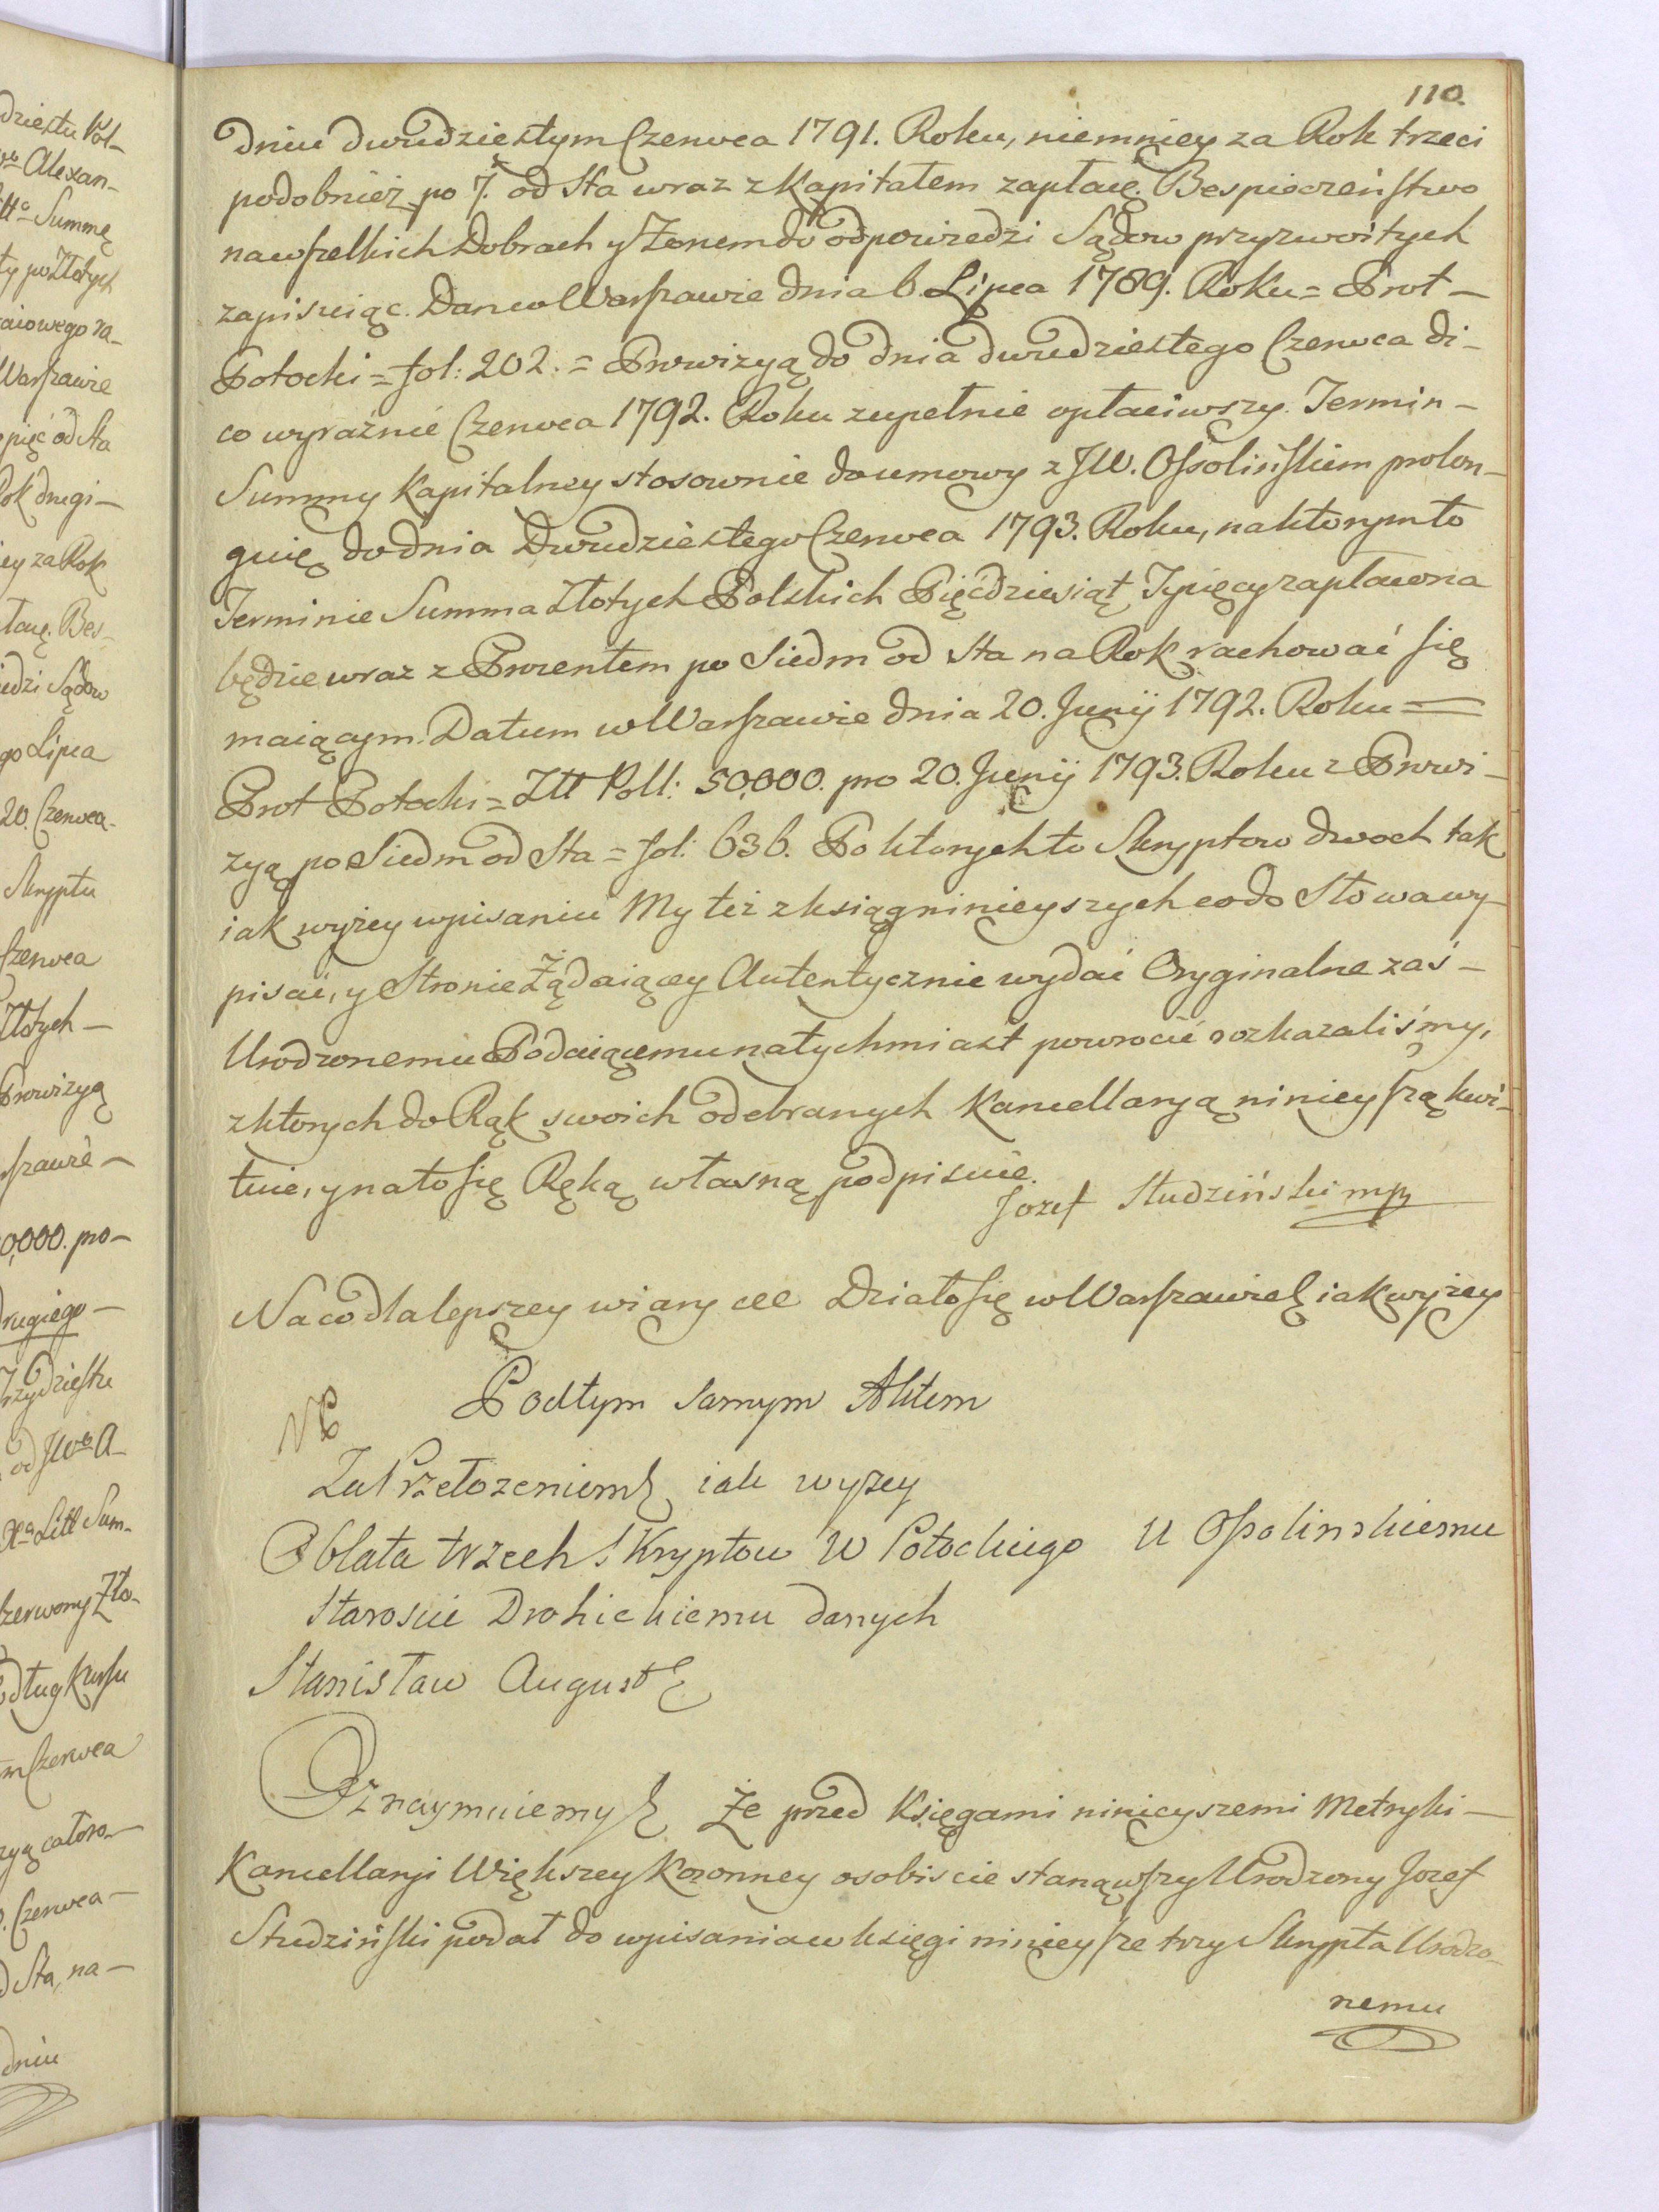 110.
dniu dwudziestym Czerwca 1791. Roku, niemniey za Rok trzeci
podobnież po 7. od Sta wraz z Kapitałem zapłacę. Bespieczeństwo
na wszelkich Dobrach y Zonem do odpowiedzi Sądow przyzwoitych
zapisuiąc. Dan w Warszawie dnia 6 Lipca 1789. Roku = Prot –
Potocki = fol: 202. = Prowizyą do dnia dwudziestego Czerwca di-
co wyraźnie Czerwca 1792. Roku zupełnie opłaciwszy. Termin –
Summy Kapitalney stosownie do umowy z JW. Ossolińskiem prolon-
guię do dnia Dwudziestego Czerwca 1793. Roku, na ktorym to
Terminie Summa Złotych Polskich Pięćdziesiąt Tysięcy zapłacona
będzie wraz z Procentem po Siedm od Sta na Rok rachować się
maiącym. Datum w Warszawie dnia 20. Junij 1792. Roku =
Prot Potocki = Ztt Poll: 50,000. pro 20. Junij 1793. Roku z Prowi-
zyą po Siedm od Sta = fol: 636. Po ktorych to Skryptow dwoch tak
iak wyżey wpisaniu My też z ksiąg ninieyszych co do Słowa wy-
pisać, y Stronie Żądaiącey Autentycznie wydać Oryginalne zaś –
Urodzonemu Podaiącemu natychmiast powrocić rozkazaliśmy,
z ktorych do Rąk swoich odebranych Kancellaryą ninieyszą kwi-
tuie, y na to się Ręką własną podpisuie.
Jozef Studziński mpp
Na co dla lepszey wiary ccc Działo się w Warszawie iak wyżey
Pod tym samym Aktem
Za Przełozeniem iak wyzey
Oblata trzech Skryptow W Potockiego U Ossolinskiemu
Staroscie Drohickiemu danych
Stanisław August
Oznaymuiemy Że przed Księgami ninieyszemi Metryki –
Kancellaryi Większey Koronney osobiscie stanąwszy Urodzony Jozef
Studziński podał do wpisania w księgi ninieysze trzy Skrypta Urodzo-
nemu
dziestu Pol-
Alexan-
Summę
ty po Złotych
Warszawie
pięć od Sta
Rok drugi –
ey za Rok
łacę. Bes-
iedzi Sądow
go Lipca
20. Czerwca
Skryptu
Czerwca
Złotych –
Prowizyą
szawie –
0,000. pro –
drugiego –
rzydziestu
od JWo A-
Litt Sum-
zerwony Zło-
dług Kursu
m Czerwca
Czerwca –
d Sta, na –
dniu